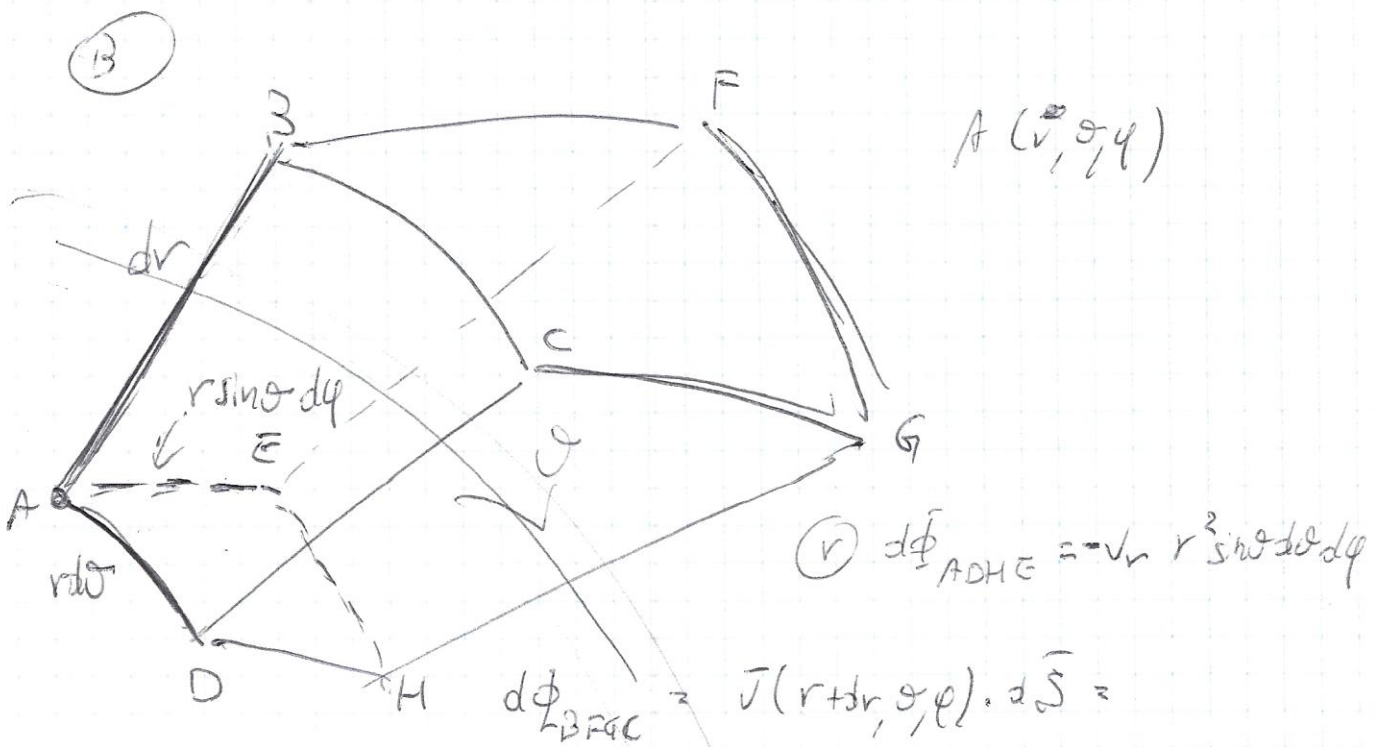 B
B
F
A (r, ϑ, φ)
dr
C
r sinϑ dφ
E
ϑ
A
G
rdϑ
(r) dΦ_ADHE = -v_r r² sinϑ dϑ dφ
D
H
dΦ_BFGC = v̄(r+dr, ϑ, φ). dS̄ =